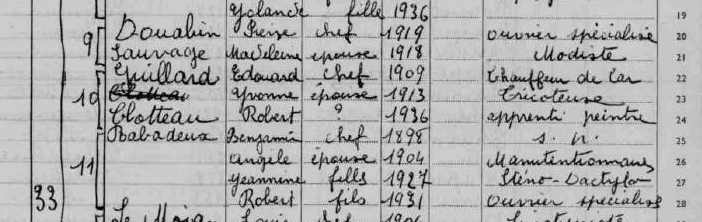 Yolande fille 1936 19
9 Douabin Pierre chef 1919 ouvrier spécialisé 20
Sauvage Madeleine épouse 1918 Modiste 21
Guillard Edouard chef 1909 Chauffeur de car 22
10 Clotteau Yvonne épouse 1913 Tricoteuse 23
Clotteau Robert ? 1936 apprenti peintre 24
Babadeux Benjamin chef 1898 s. p. 25
11 Angèle épouse 1904 26
Jeannine fille 1927 Sténo-Dactylo 27
33 Robert fils 1931 Ouvrier spécialisé 28
Louis chef